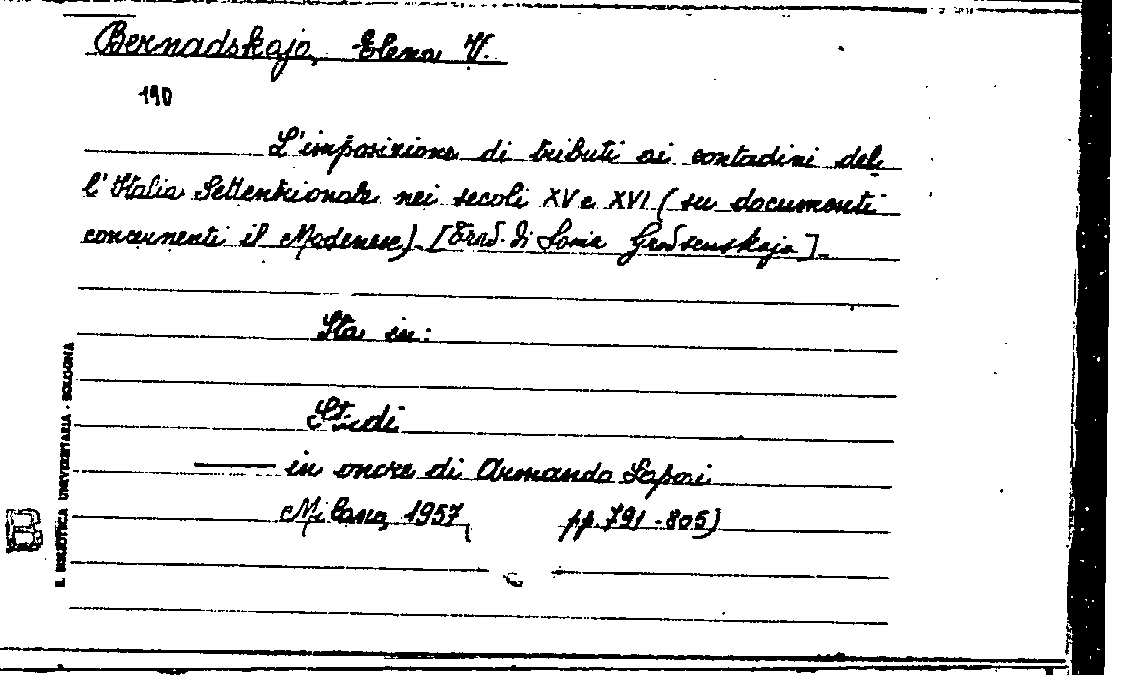 Bernadskaja, Elena V.
190
L'imposizione di tributi ai contadini del
l'Italia Settentrionale nei secoli XV e XVI (su documenti
concernenti il Modenese). [Trad. di Sonia
Sta in:
Studi
——— in onore di Armando Sapori
Milano, 1957, pp. 791-805)
B
R. BIBLIOTECA UNIVERSITARIA - BOLOGNA